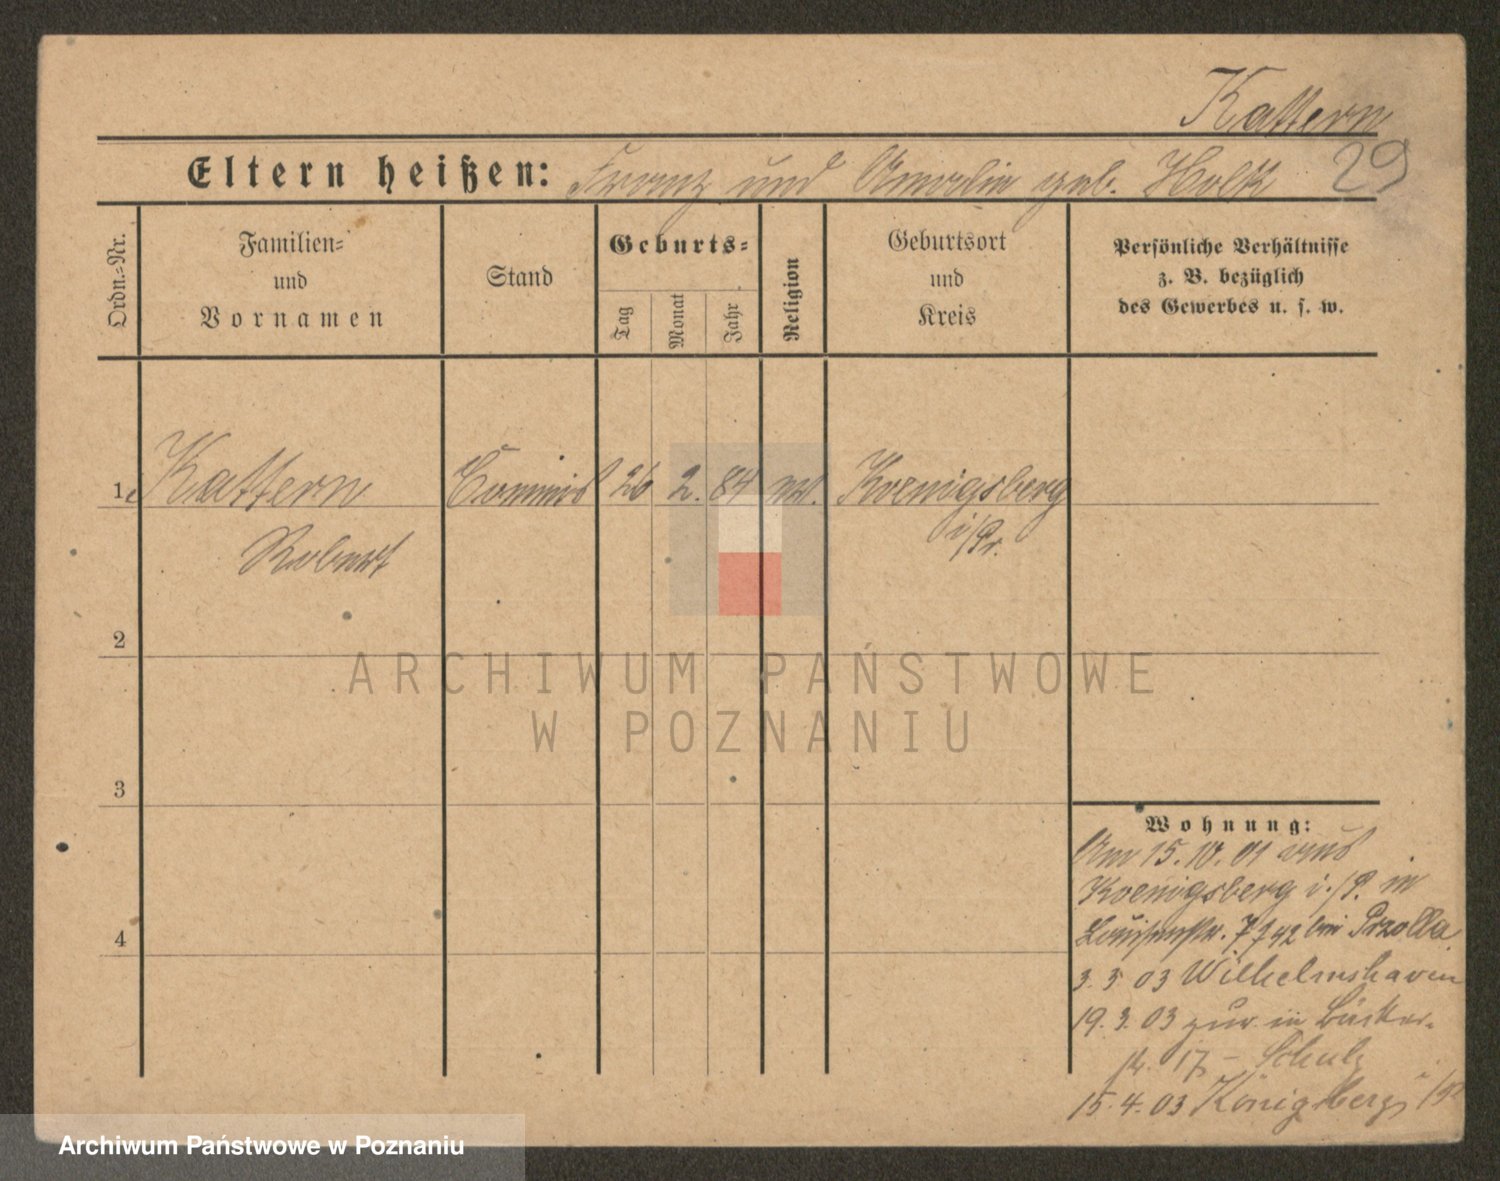 Kattern
Eltern heißen: Franz und Amalie geb. Holtz 29
Ordn.-Nr.
Familien-
und
Vornamen
Stand
Geburts-
Tag
Monat
Jahr
Religion
Geburtsort
und
Kreis
Persönliche Verhältnisse
z. B. bezüglich
des Gewerbes u. s. w.
1. Kattern Commis 26 2. 84 Koenigsberg
Robert i/Pr.
2
3
4
Wohnung:
Am 15. 10. 01 aus
Koenigsberg i./P. in
Louisenstr. 7 bei Przolla
3. 3 03 Wilhelmshaven
19. 3. 03 zur. in Bäcker-
str. 17 - Schulz
15. 4. 03 Königsberg i/Pr
ARCHIWUM PAŃSTWOWE
W POZNANIU
Archiwum Państwowe w Poznaniu